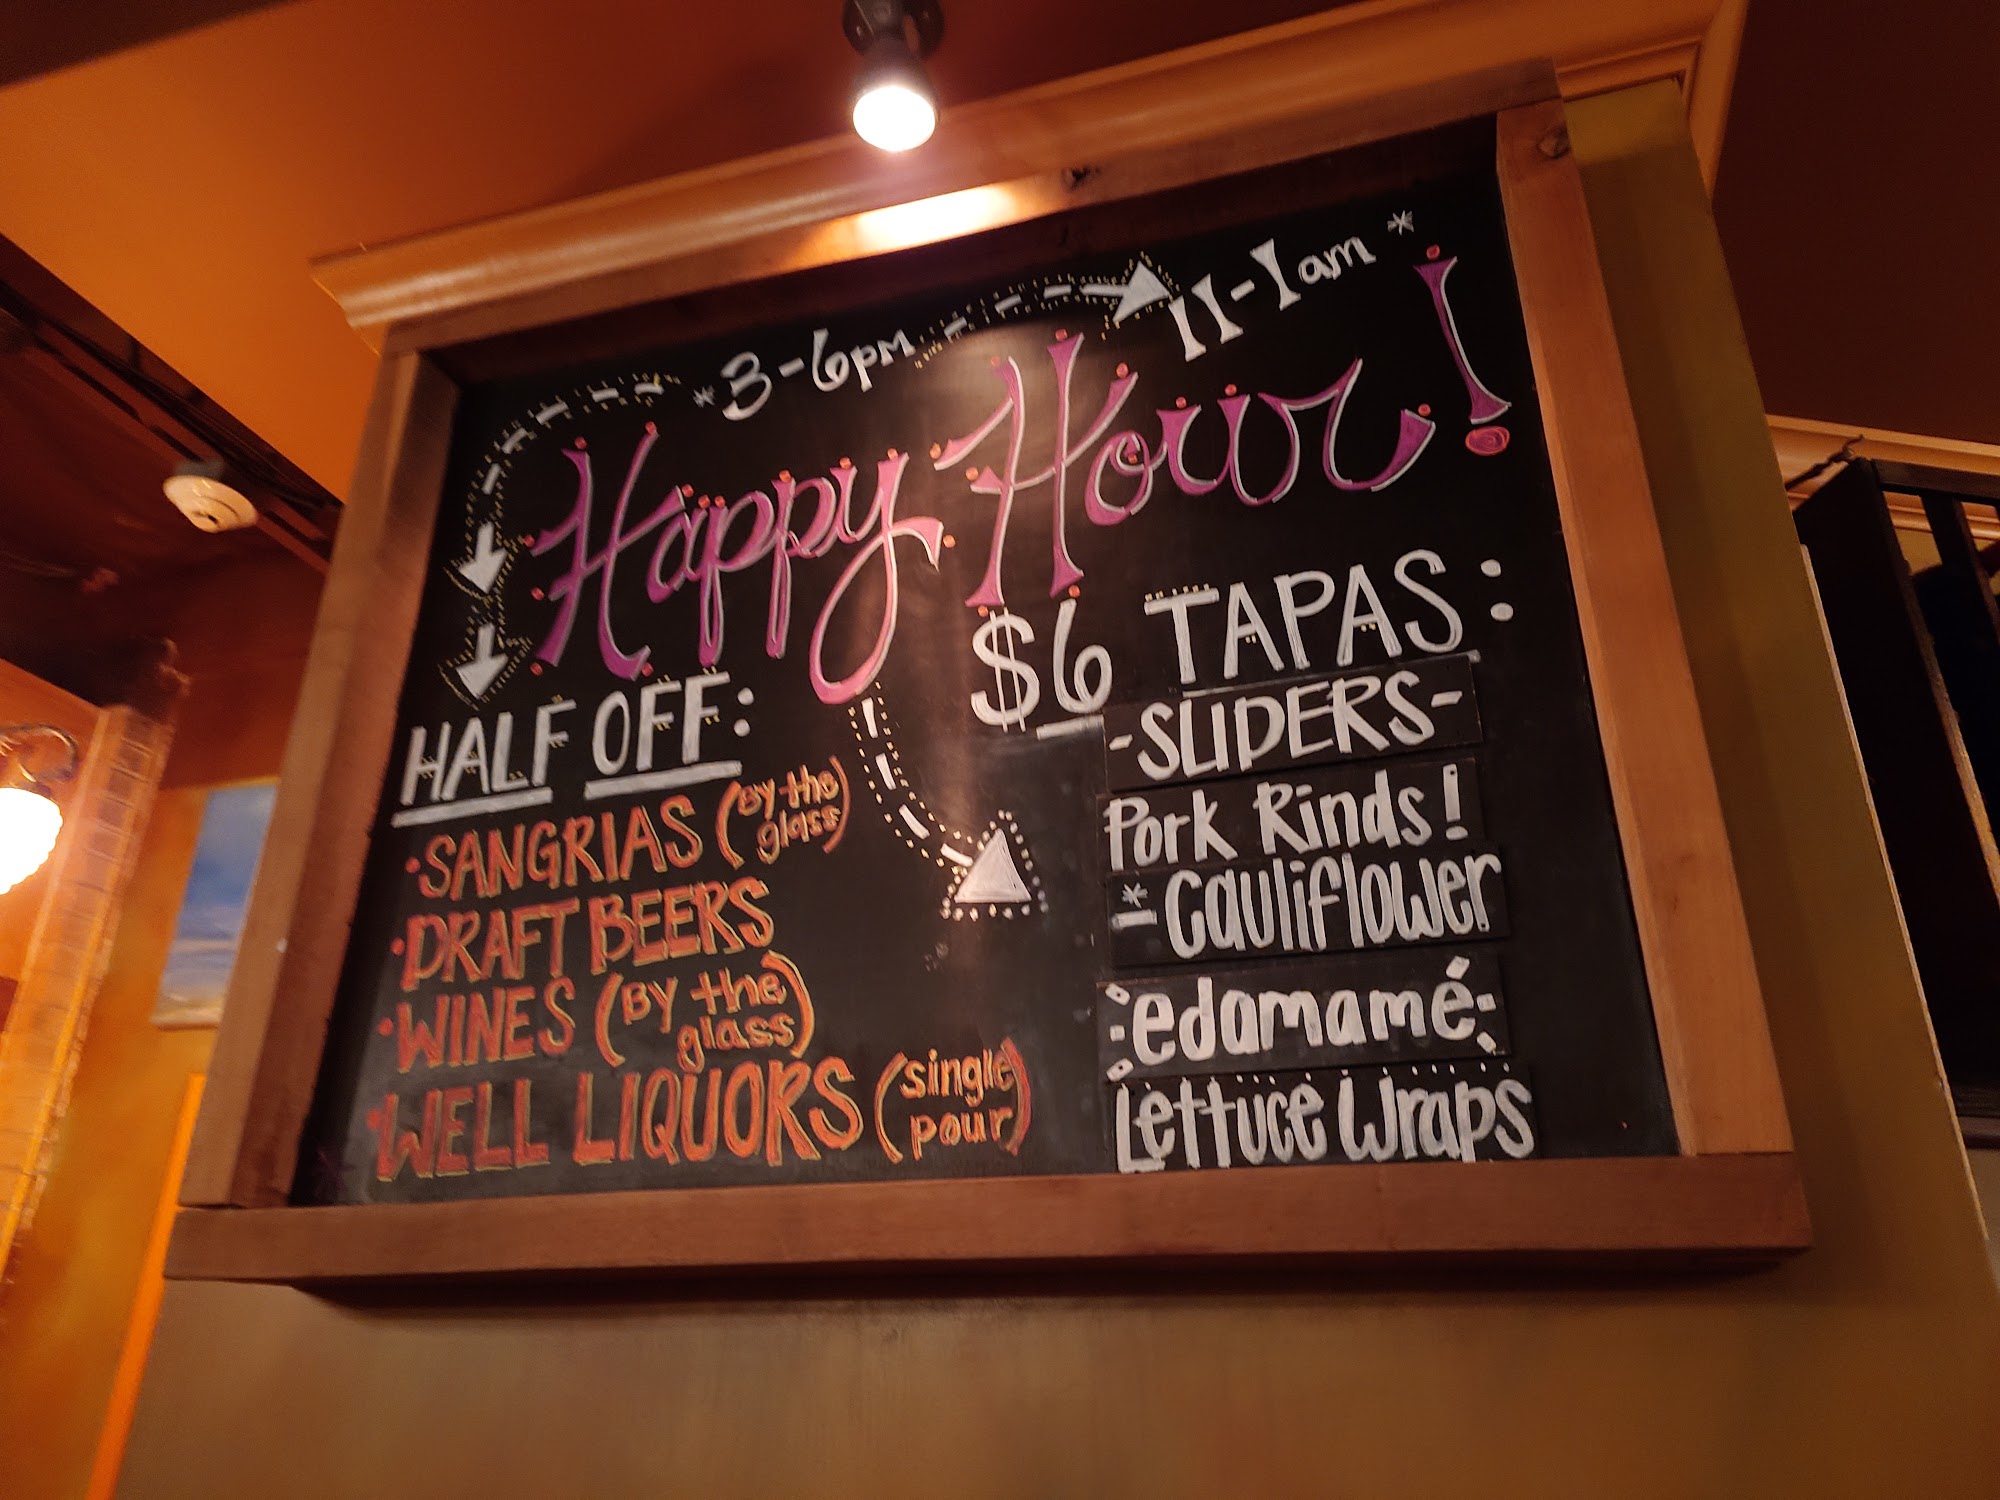 *3-6pm
11-1am*
Happy Hour!
HALF OFF:
• SANGRIAS (By the glass)
• DRAFT BEERS
• WINES (By the glass)
• WELL LIQUORS (single pour)
$6 TAPAS:
-SLIDERS-
Pork Rinds!
* Cauliflower
edamamé
Lettuce Wraps